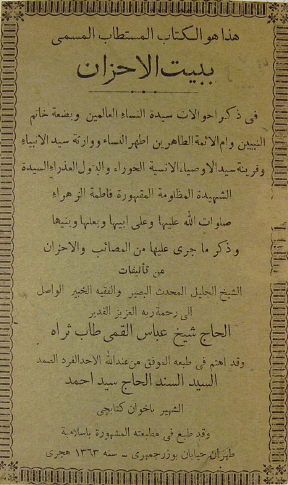 هذا هو الكتاب المستطاب المسمى
ببيت الاحزان
فى ذكر احوالات سيدة النساء العالمين وبضعة خاتم
النبيين وام الائمة الطاهرين اطهر النساء ووارثة سيد الانبياء
وقرينة سيد الاوصياء الانسية الحوراء والبتول العذراء السيدة
الشهيدة المظلومة المقهورة فاطمة الزهراء
صلوات الله عليها وعلى ابيها وبعلها وبنيها
وذكر ما جرى عليها من المصائب والاحزان
من تأليفات
الشيخ الجليل المحدث البصير والفقيه الخبير الواصل
الى رحمة ربه العزيز القدير
الحاج شيخ عباس القمى طاب ثراه
وقد اهتم فى طبعه الموفق من عندالله الاحد الفرد الصمد
السيد السند الحاج سيد احمد
الشهير باخوان كتابچى
وقد طبع فى مطبعته المشهورة باسلامية
طهران خيابان بوزرجمهرى - سنه ١٣٦٣ هجرى